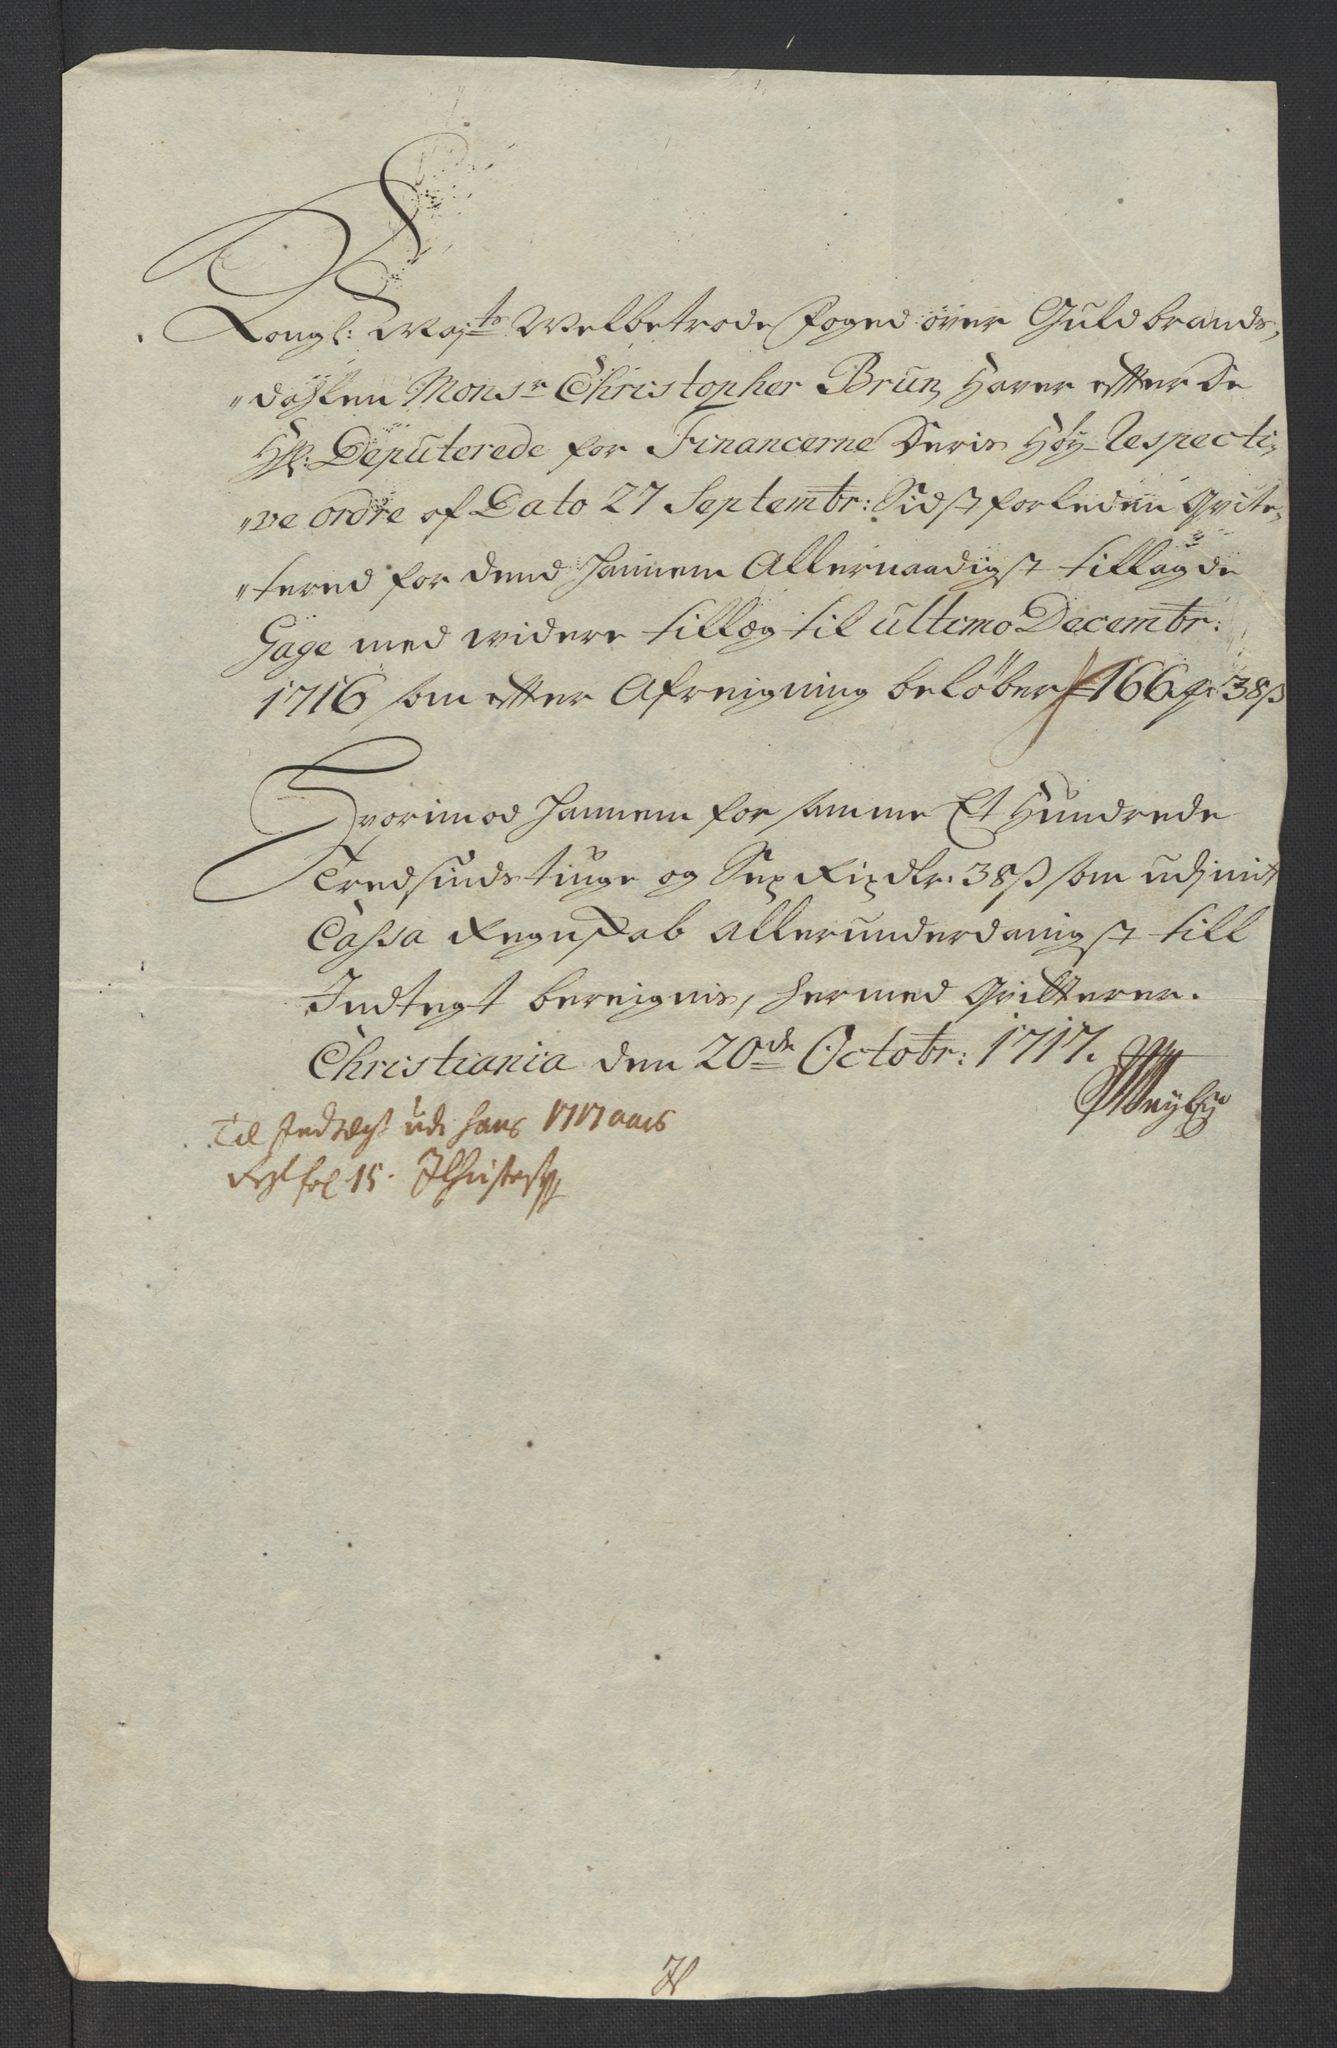 Kongl: Maÿts Welbetrode foged över Guldbrands,
"dahlen Monsr Christopher Brun, Haver efter De
Hr: Deputerede for Financerne Deris Høy-Respecti,
"ve ordre af Dato 27 Septembr: Sidst forleden Qvite,
"tered for dend hannem Allernaadigst tillagde
Gage med widere tillæg til ultimo Decembr:
1716 som efter Afreigning beløber 166 rdr 38 ß
Hvorimod hannem for samme Et Hundrede
Tredsindstiuge og Sex Rixdlr: 38 ß som udj mit
Cassa Regnskab allerunderdanigst till
Indtegt bereignis, hermed Qvitterer.
Christiania den 20de Octobr: 1717.
Til Indtægt udi hans 1717 aars
Regl fol 15.